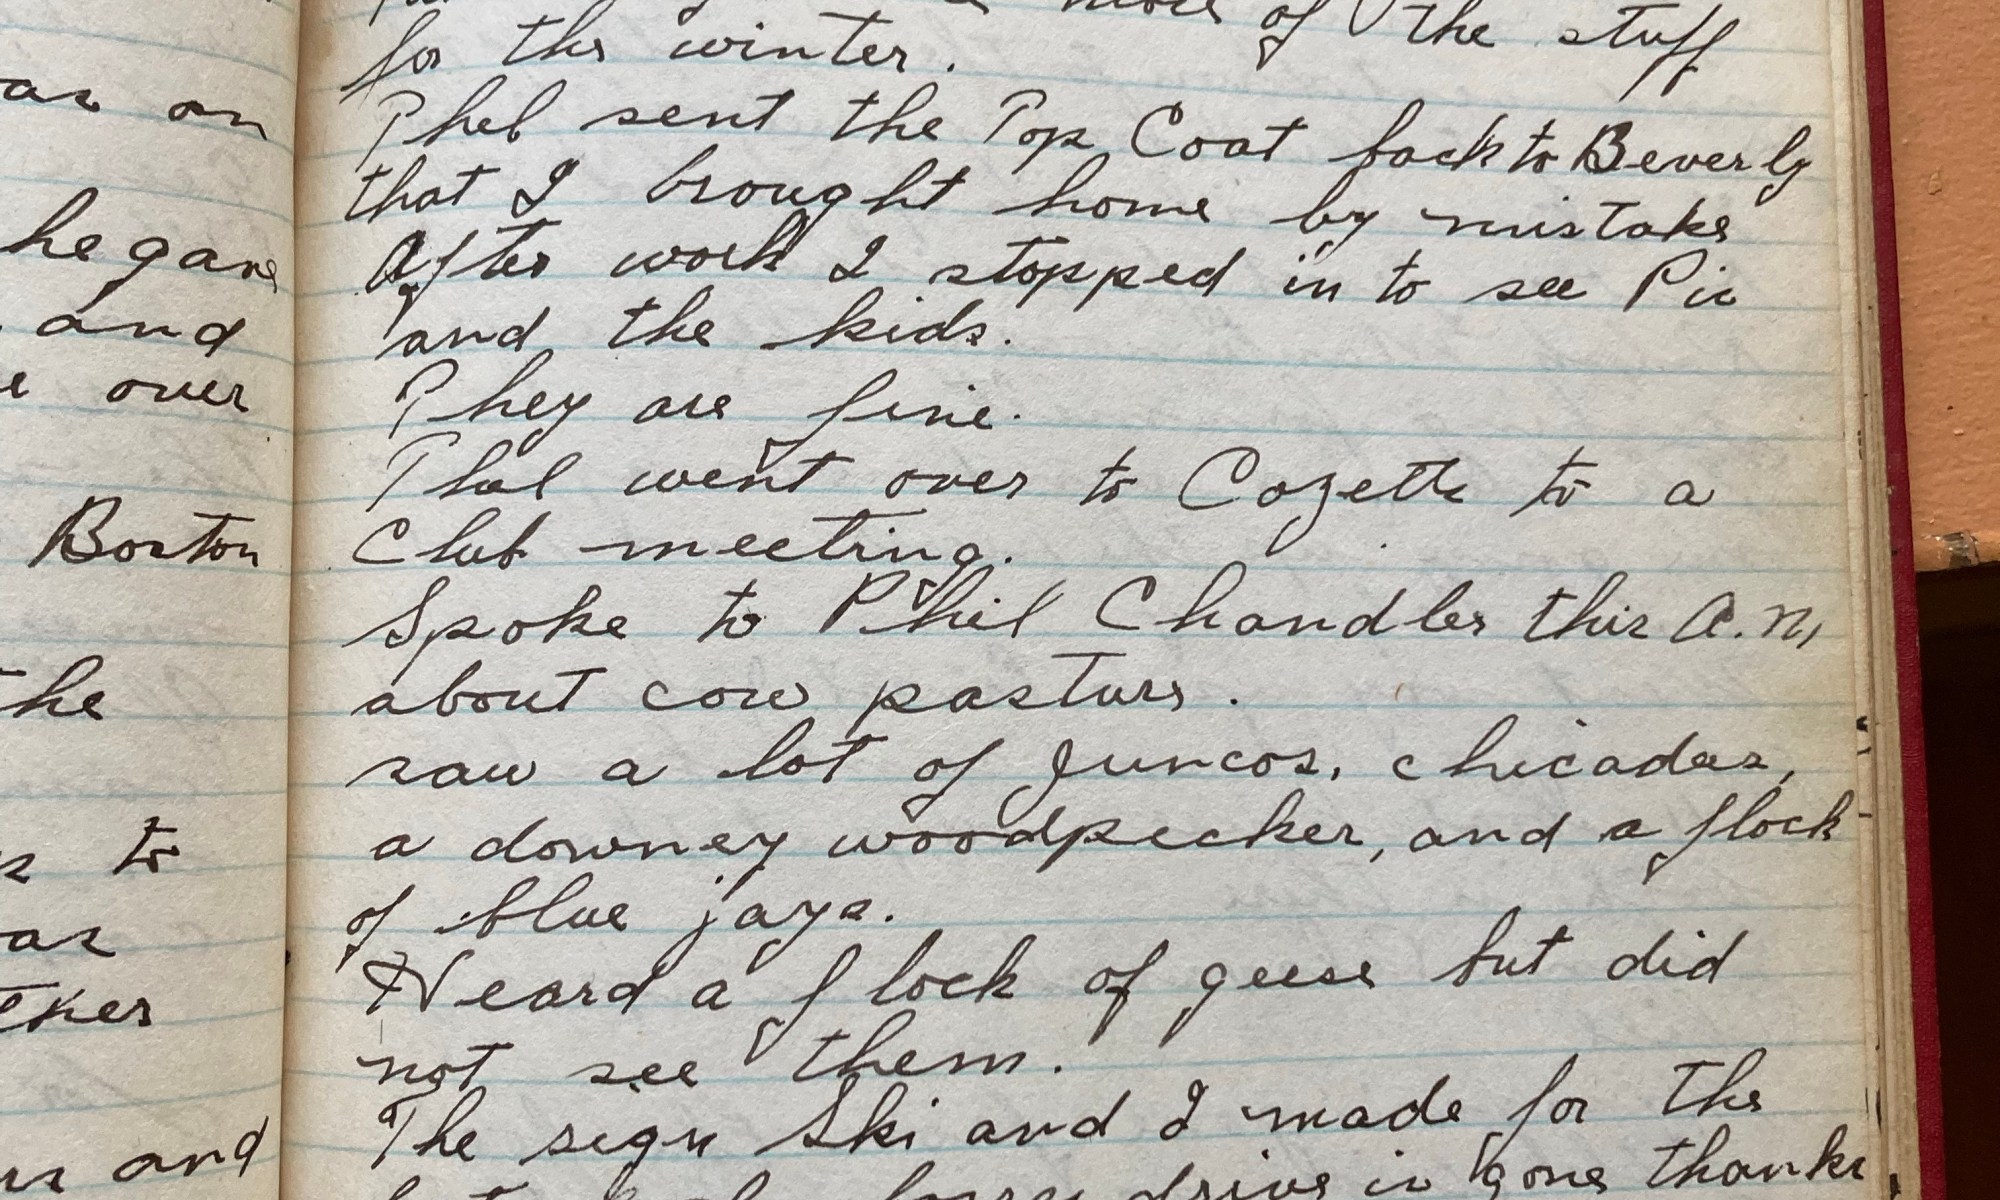 as on
he gave
and
over
Boston
the
to
as
and
of the stuff
for the winter.
Phel sent the Top Coat back to Beverly
that I brought home by mistake
After work I stopped in to see Pic
and the kids.
They are fine.
Phel went over to Cozette to a
Club meeting.
Spoke to Phil Chandler this A.M,
about cow pasture.
saw a lot of Juncos, chicadas,
a downey woodpecker, and a flock
of blue jays.
Heard a flock of geese but did
not see them.
The sign Ski and I made for the
drive in gone thanks